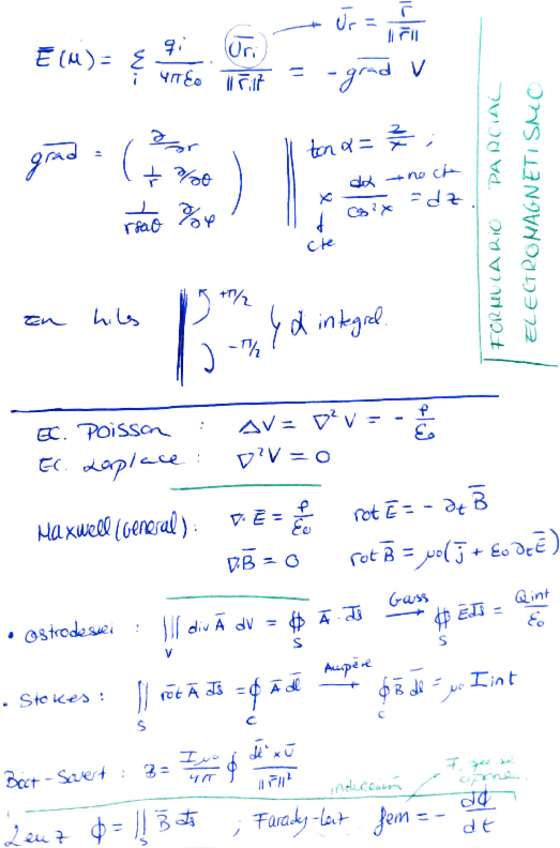 Ē(M) = Σ_i q_i/(4πε₀) · Ū_{ri}/||r̄_i||² = -grad V → Ūr = r̄/||r̄||
grad = ( ∂/∂r
1/r ∂/∂θ
1/(r sen θ) ∂/∂φ )
tan α = z/x ;
x dα/cos²x = dz. → no cte
cte
FORMULARIO PARCIAL
ELECTROMAGNETISMO
En hilos +π/2 -π/2 } α integral.
EC. Poisson : ΔV = ∇²V = - ρ/ε₀
EC. Laplace : ∇²V = 0
Maxwell (General) : ∇·Ē = ρ/ε₀ rot Ē = - ∂t B̄
∇·B̄ = 0 rot B̄ = μ₀(j̄ + ε₀ ∂t Ē)
• Ostrodeswi : ∭_V div Ā dV = ∯_S Ā · ds̄ Gass → ∯_S Ē ds̄ = Qint/ε₀
• Stokes : ∬_S rot Ā ds̄ = ∮_C Ā dl̄ Ampère → ∮_C B̄ dl̄ = μ₀ Iint
Biot-Savert : B = Iμ₀/4π ∮ dl̄' × Ū/||r̄||²
inducción F. que se opone.
Lenz ϕ = ∬_S B̄ ds̄ ; Farady-Lenz fem = - dϕ/dt